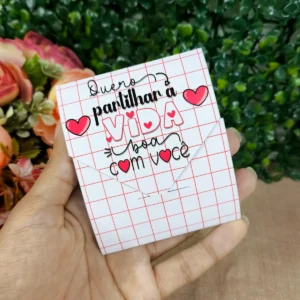 Quero
partilhar a
VIDA
boa
com você